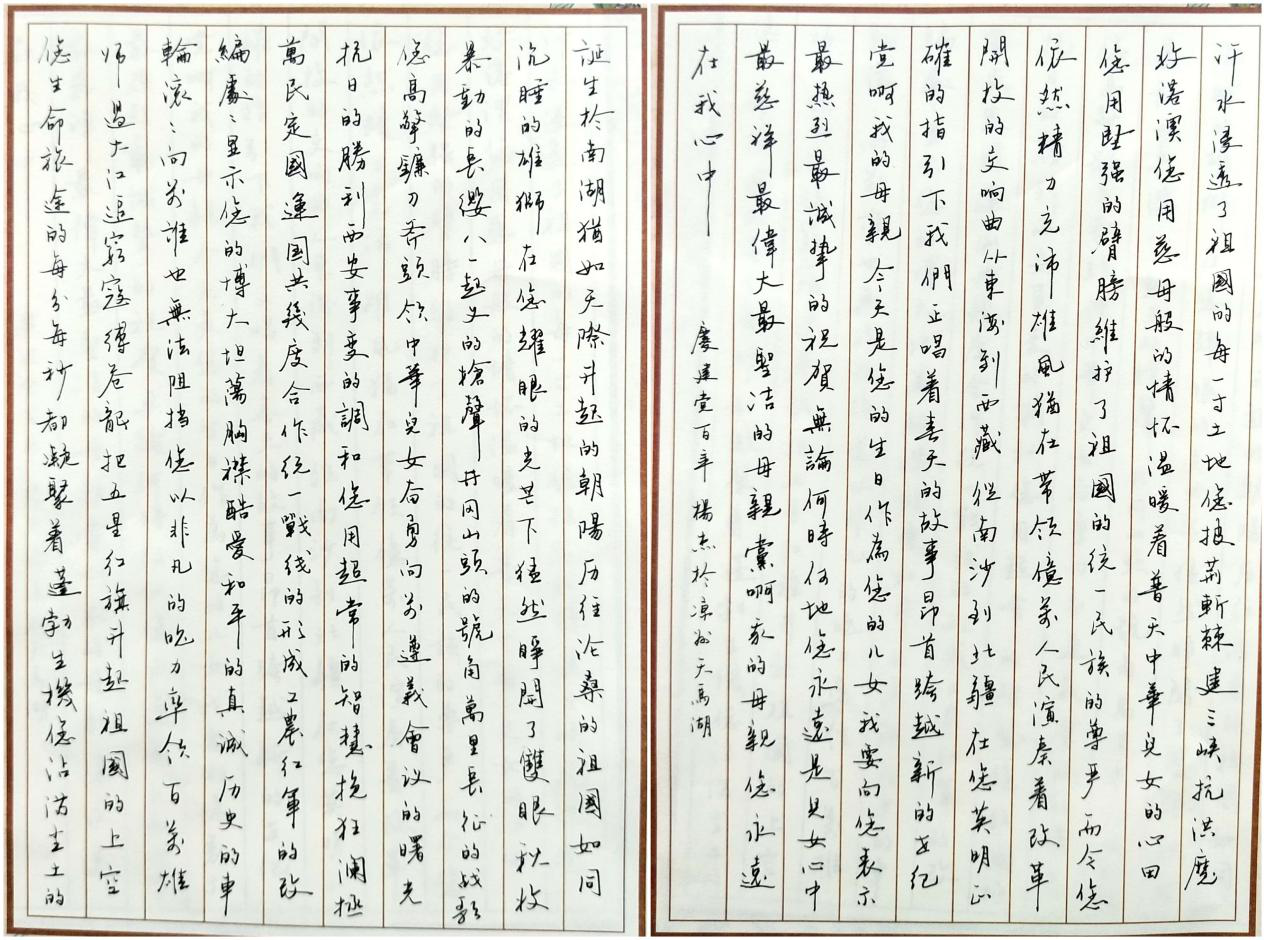 誕生於南湖猶如天際升起的朝陽历经沧桑的祖國如同
沉睡的雄獅在您耀眼的光芒下猛然睜開了雙眼秋收
暴動的長纓八一起义的槍聲井冈山頭的號角萬里長征的战歌
您高擎鐮刀斧頭领中華兒女奋勇向前遵義會议的曙光
抗日的勝利西安事变的調和您用超常的智慧挽狂澜拯
萬民定國運国共幾度合作统一戰线的形成工農红軍的改
編處處显示您的博大坦蕩胸襟酷愛和平的真诚历史的車
輪滚滚向前誰也無法阻挡您以非凡的魄力率领百萬雄
师過大江追窮寇縛苍龍把五星红旗升起祖國的上空
您生命旅途的每分每秒都凝聚着蓬勃生機您沾满尘土的
汗水浸透了祖國的每一寸土地您披荆斬棘建三峡抗洪魔
收港澳您用慈母般的情怀温暖着普天中華兒女的心田
您用坚强的臂膀維护了祖國的统一民族的尊严而今您
依然精力充沛雄風猶在带领億萬人民演奏着改革
開放的交响曲从東海到西藏從南沙到北疆在您英明正
確的指引下我們正唱着春天的故事昂首跨越新的世纪
党啊我的母親今天是您的生日作為您的儿女我要向您表示
最热烈最誠挚的祝賀無論何時何地您永遠是兒女心中
最慈祥最偉大最聖洁的母親黨啊我的母親您永遠
在我心中
慶建党百年楊杰於凉州天馬湖